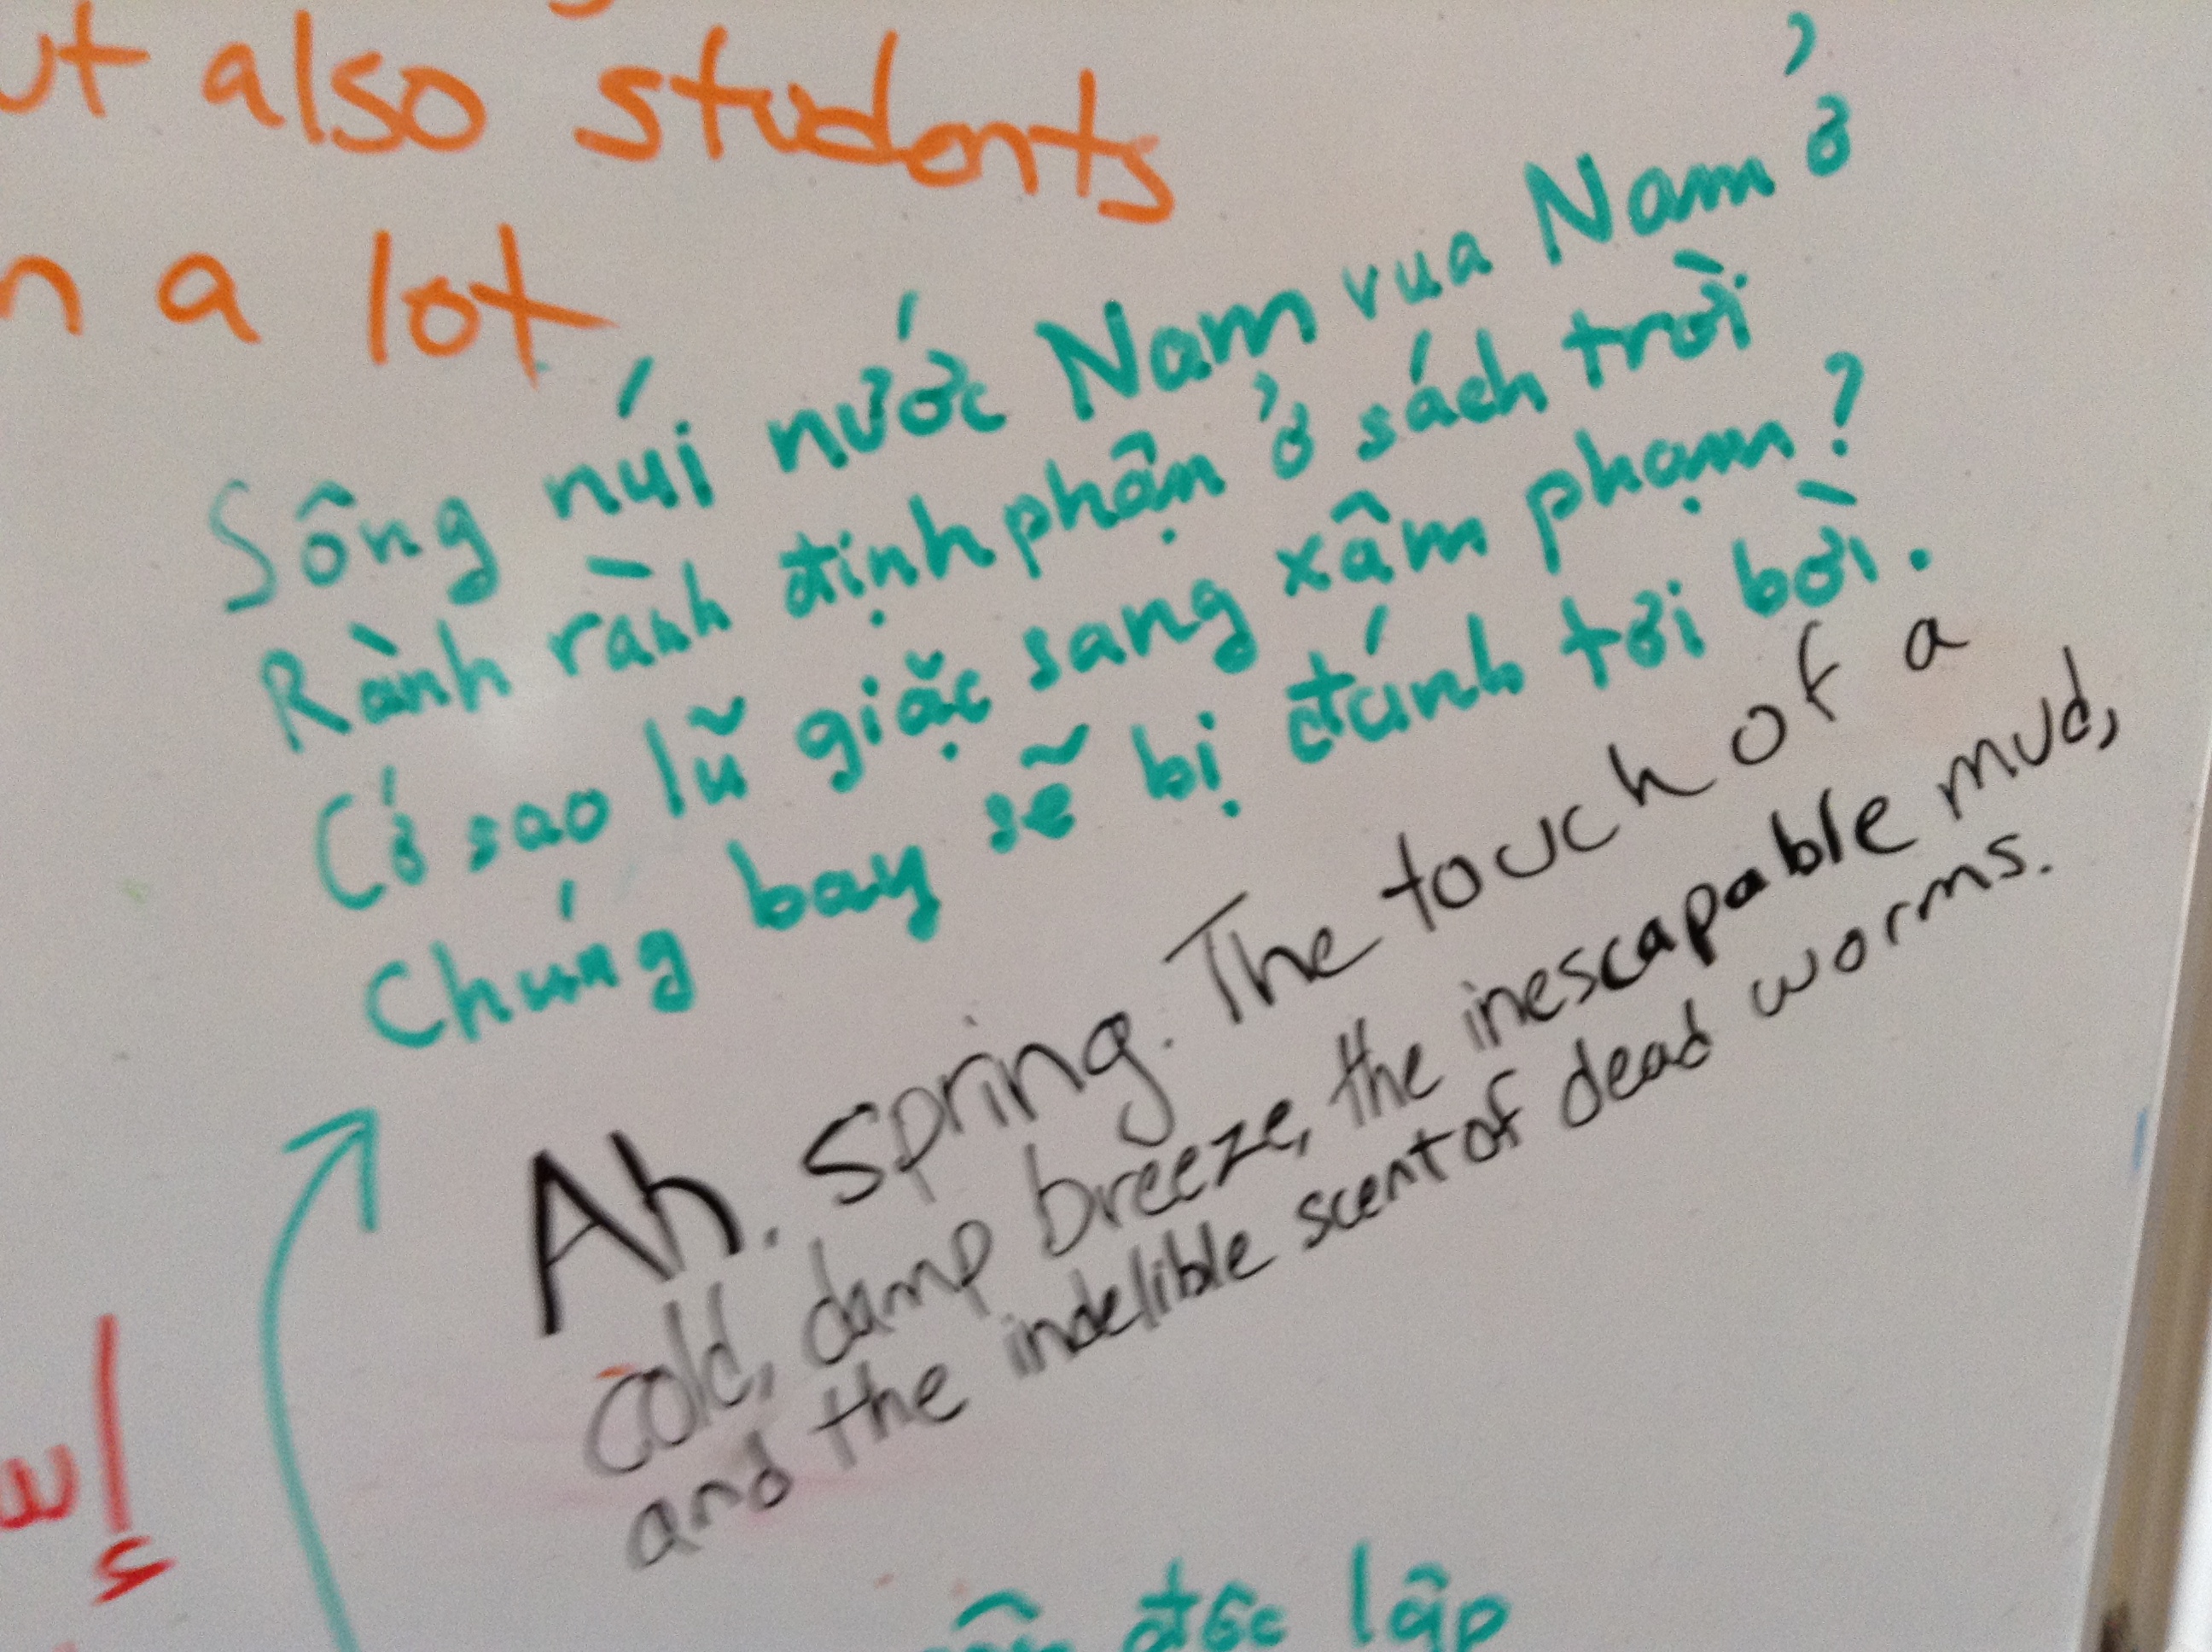 ut also students
n a lot
Sông núi nước Nam vua Nam ở
Rành rành định phận ở sách trời
Cớ sao lũ giặc sang xâm phạm?
Chúng bay sẽ bị đánh tơi bời.
Ah. Spring. The touch of a
cold, damp breeze, the inescapable mud,
and the indelible scent of dead worms.
độc lập